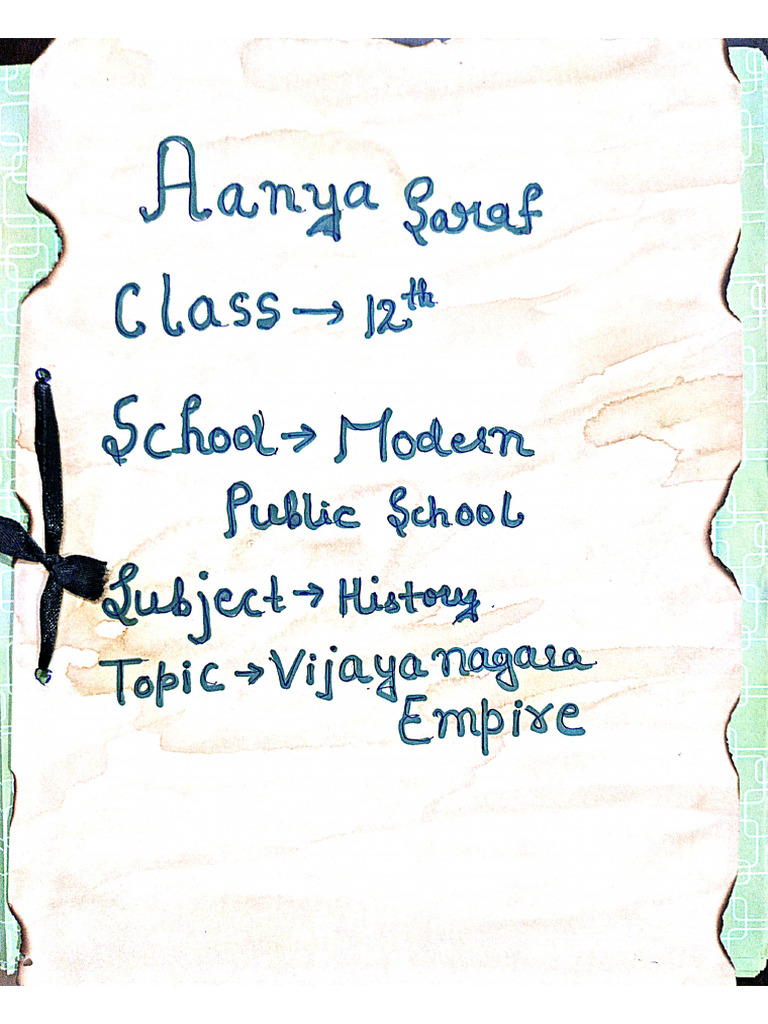 Aanya Saraf
Class → 12th
School → Modern
Public School
Subject → History
Topic → Vijayanagara
Empire